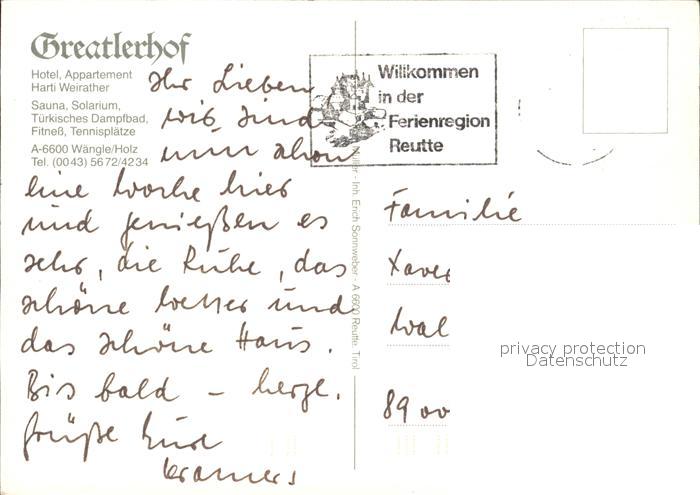 Greatlerhof
Hotel, Appartement
Harti Weirather
Sauna, Solarium,
Türkisches Dampfbad,
Fitneß, Tennisplätze
A-6600 Wängle/Holz
Tel. (0043) 5672/4234
Ihr Lieben
wir sind
nun schon
eine Woche hier
und genießen es
sehr, die Ruhe, das
schöne Wetter und
das schöne Haus.
Bis bald – herzl.
Grüße Eure
Kramers
Willkommen
in der
Ferienregion
Reutte
Müller - Inh. Erich Sonnweber - A 6600 Reutte, Tirol
Familie
Xaver
Wal
8900
privacy protection
Datenschutz